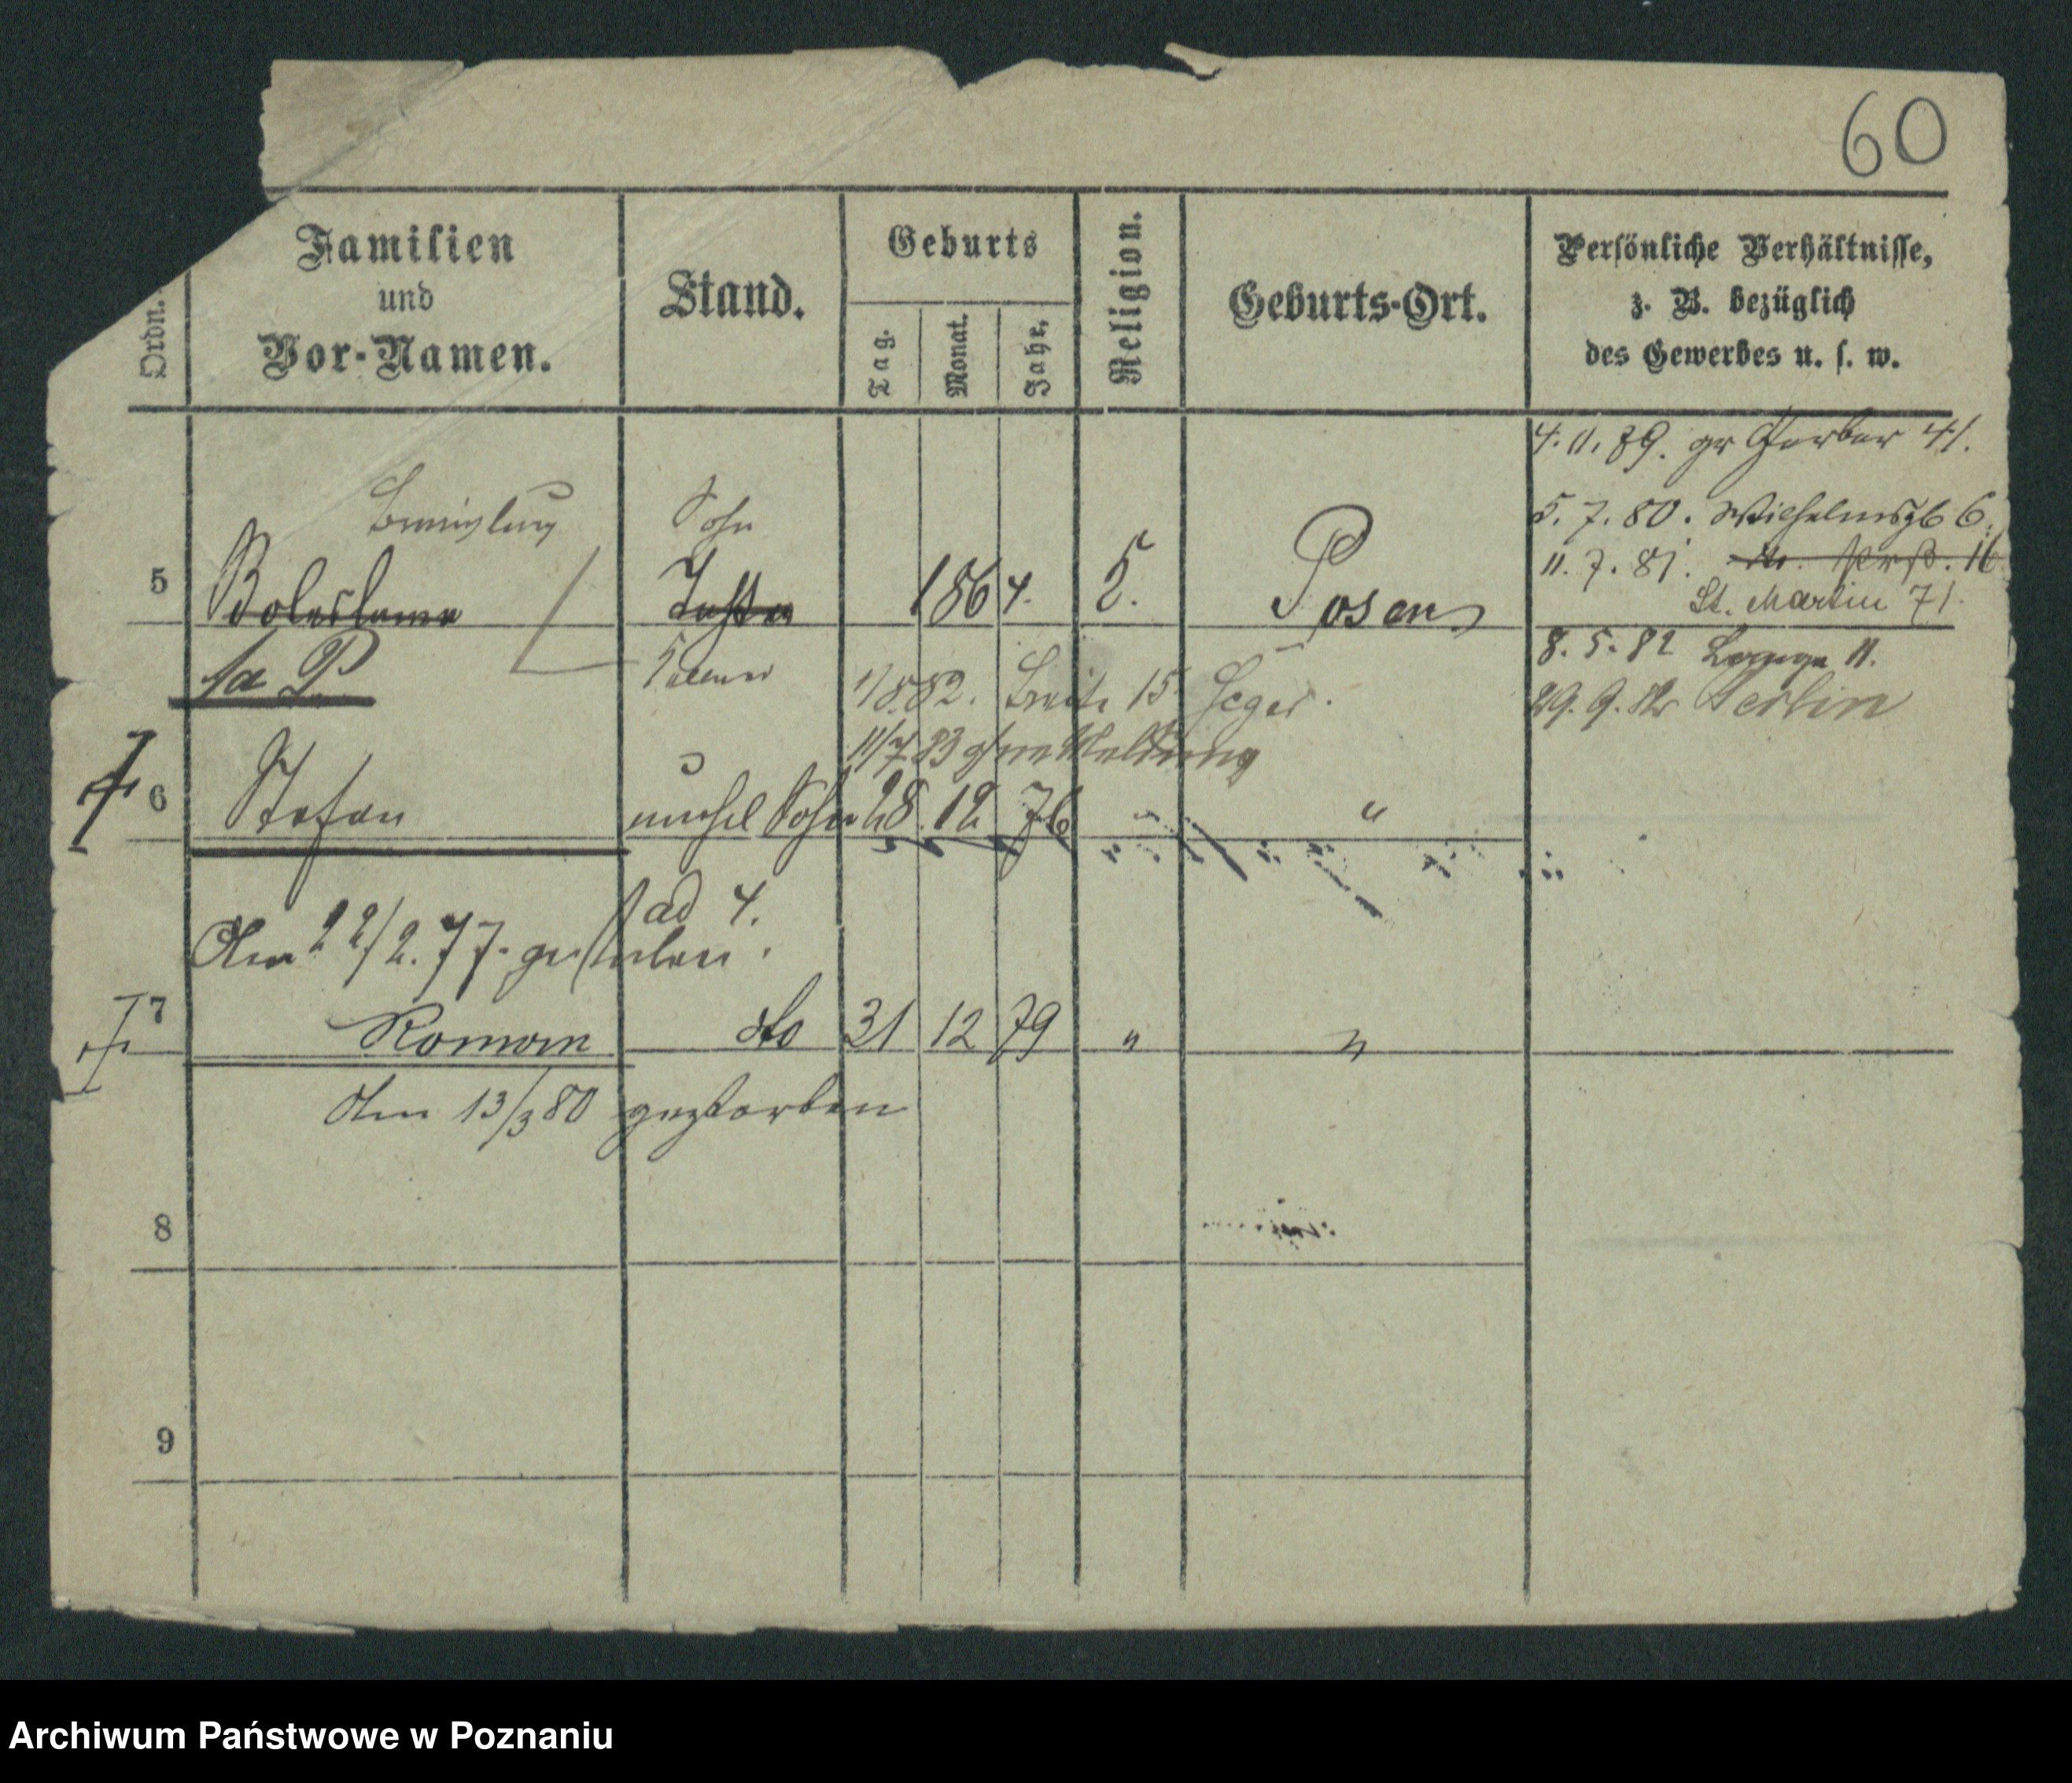 60
Ordn.
Familien
und
Vor-Namen.
Stand.
Geburts
Tag.
Monat.
Jahr.
Religion.
Geburts-Ort.
Persönliche Verhältnisse,
z. B. bezüglich
des Gewerbes u. s. w.
4. 11. 79. gr Gerber 41.
5. 7. 80. Wilhelmspl 6.
11. 7. 81. 16
St. Martin 71.
8. 5. 82 11.
29. 9. 82 Berlin
Sohn
5 Boleslawa 1864. Posen
1/8.82. Breite 15
11/7 83 ohne Meldung
6 Stefan unehel Sohn 28 12 76 "
ad 4.
Am 22/2. 77. gestorben.
7 Roman dto 31 12 79 " "
Am 13/3 80 gestorben
8
9
Archiwum Państwowe w Poznaniu